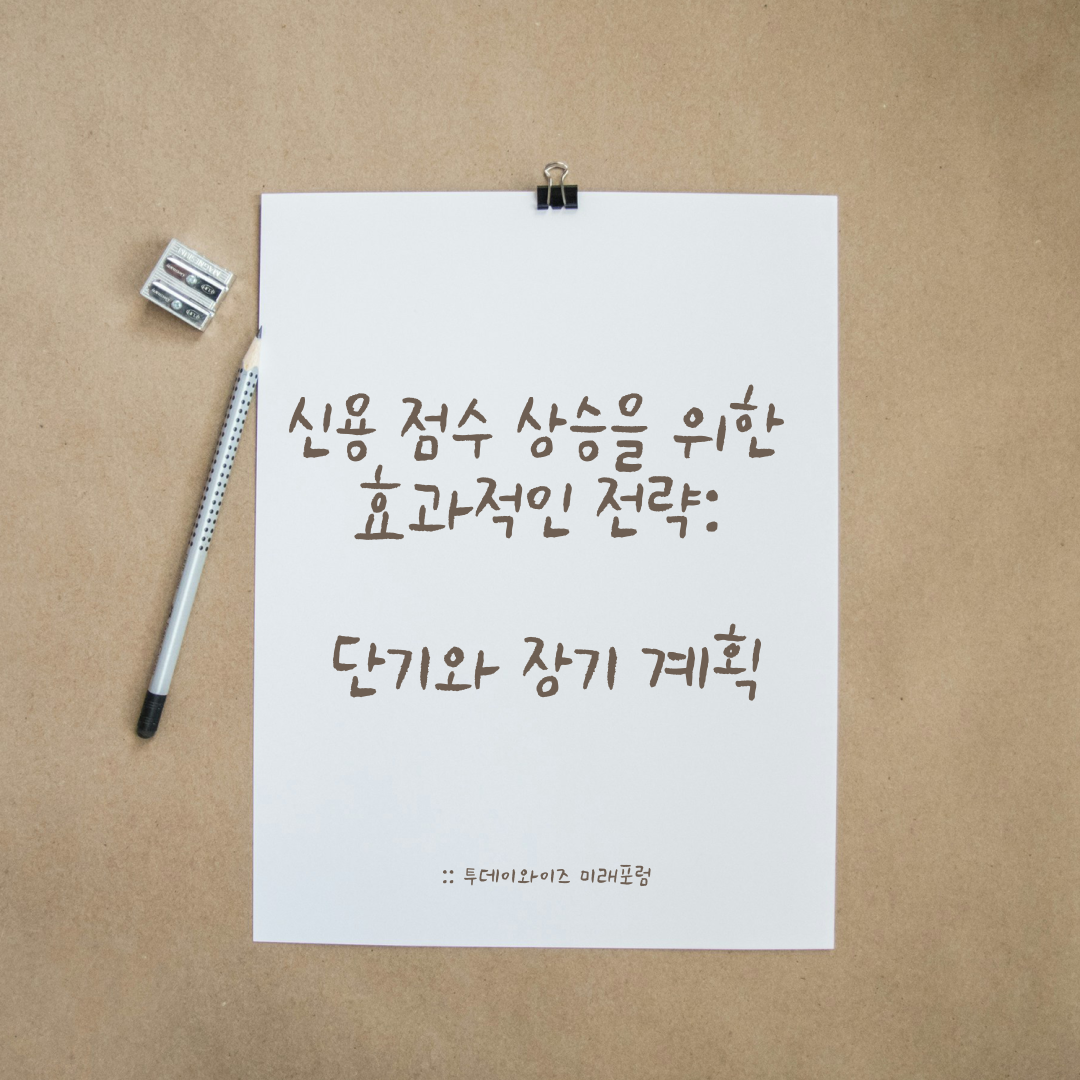 신용 점수 상승을 위한
효과적인 전략:
단기와 장기 계획
:: 투데이와이즈 미래포럼